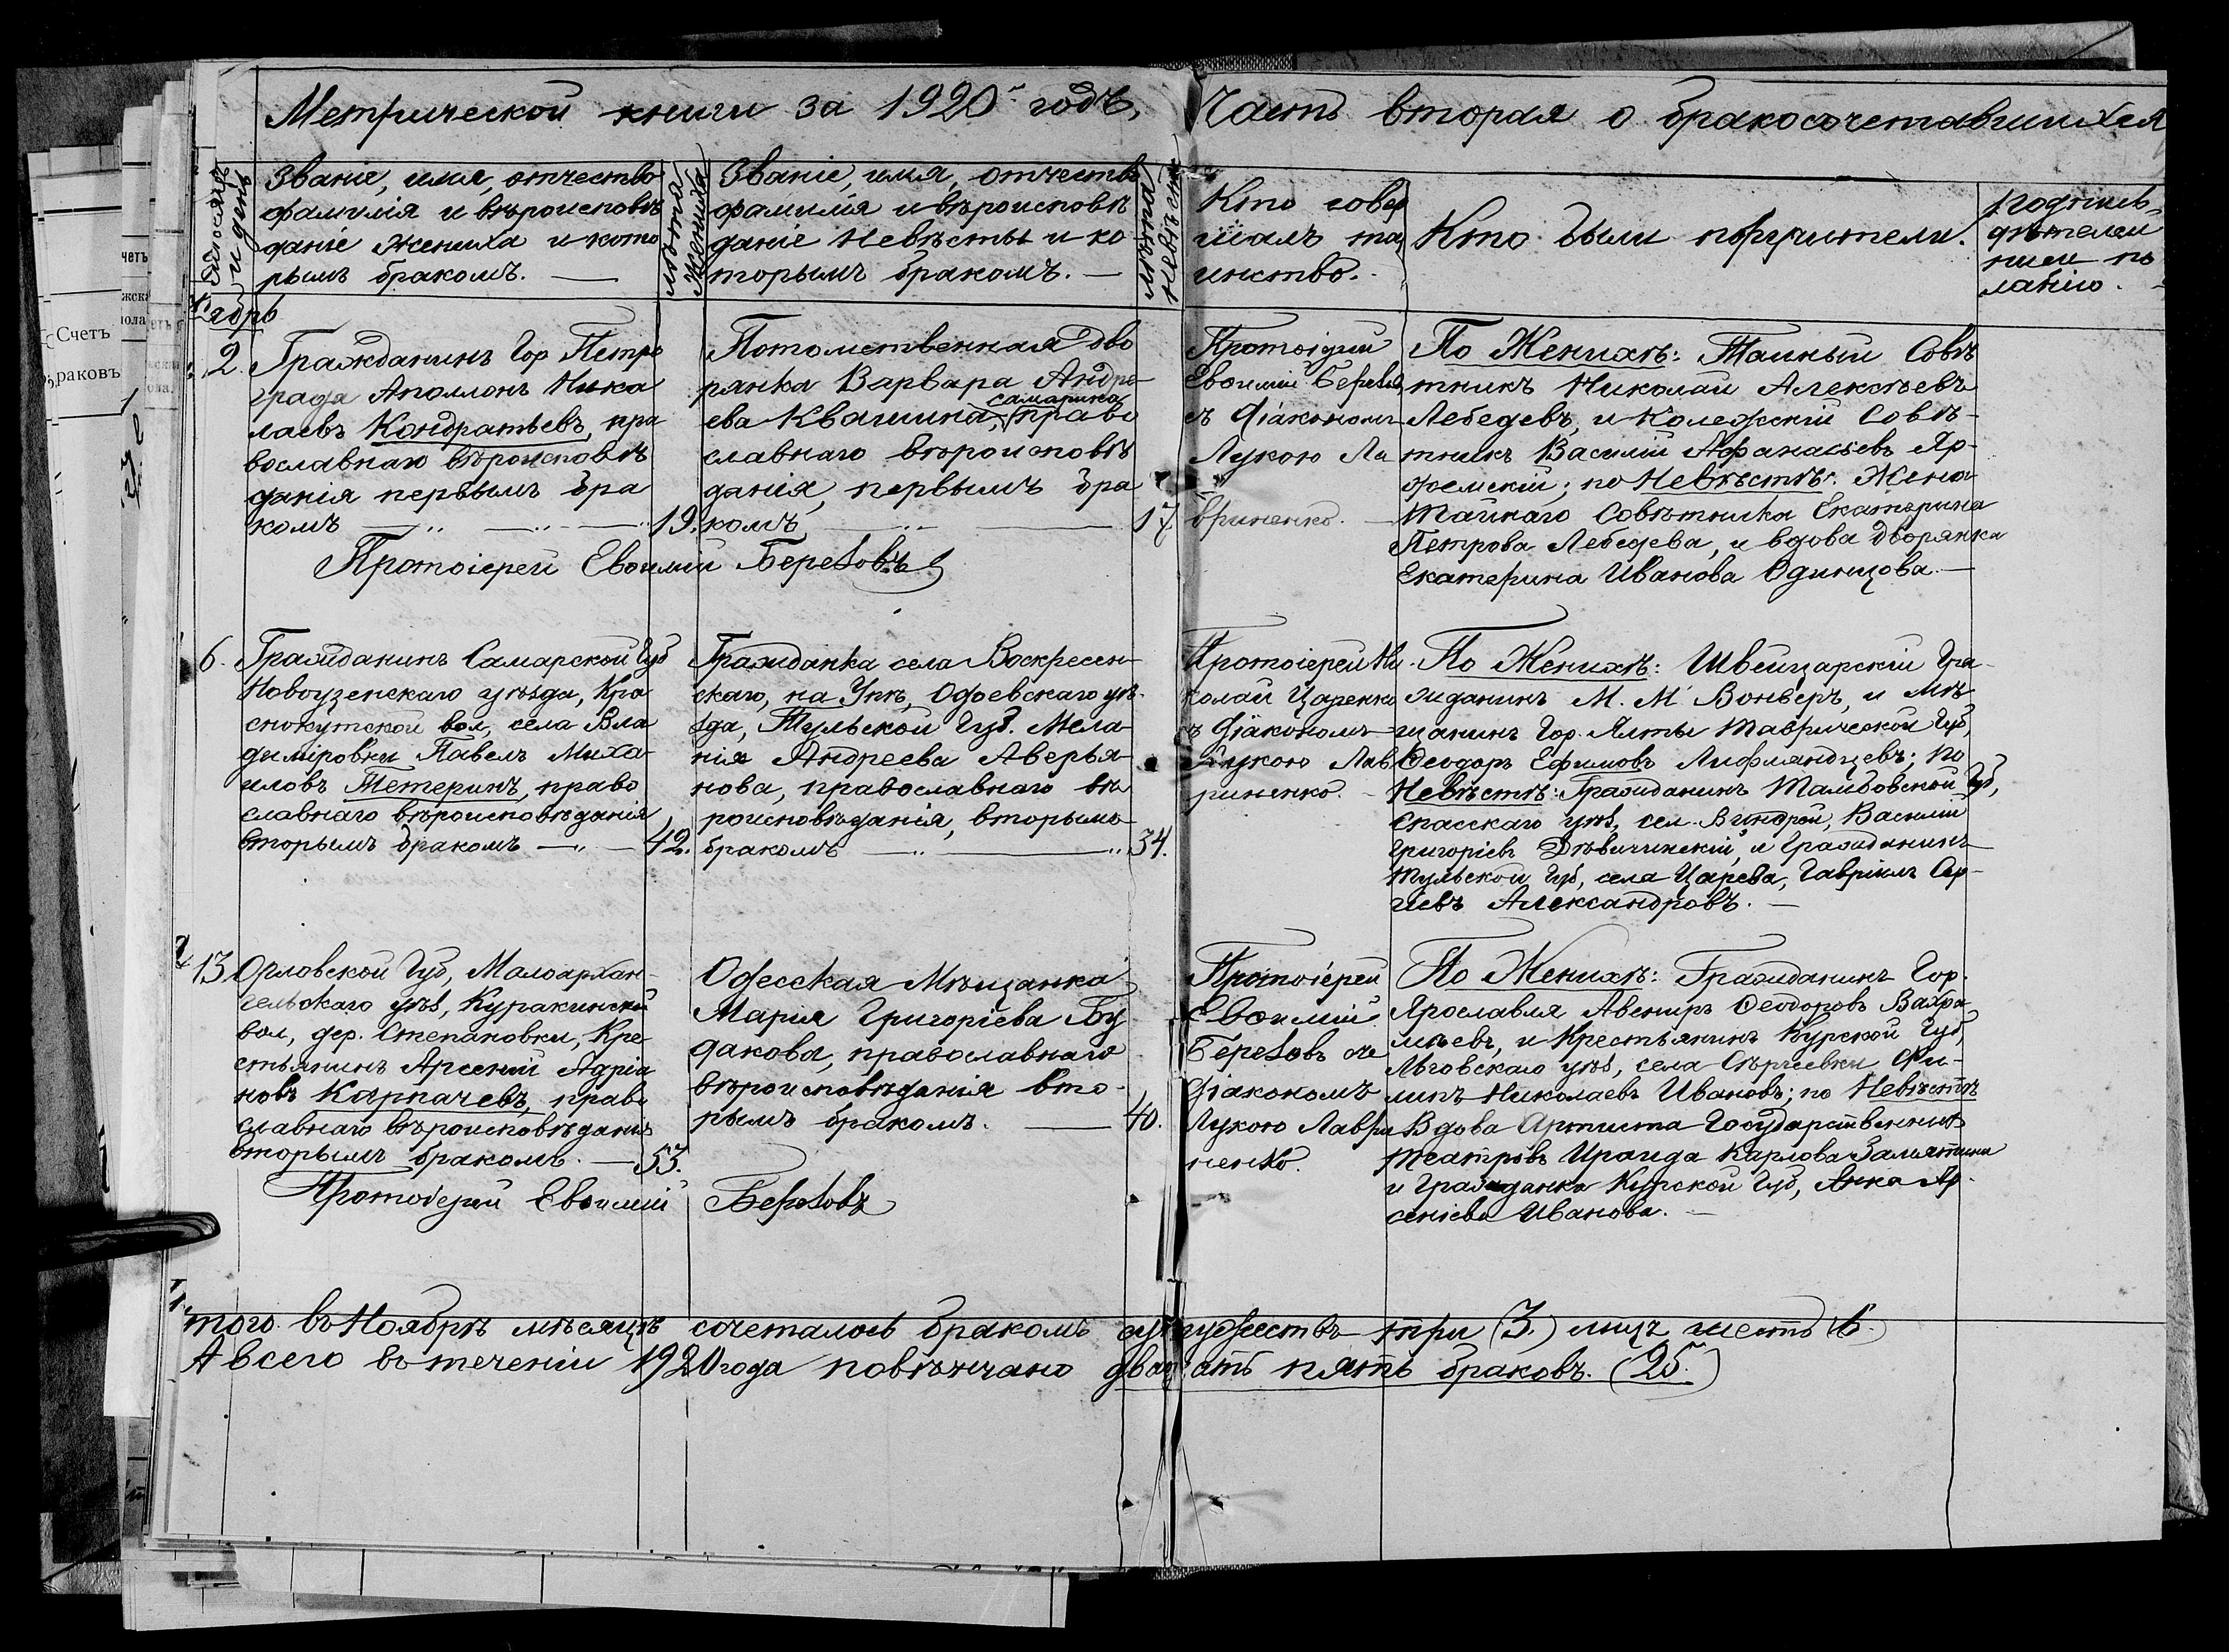 Метрической книги за 1920 годъ, Часть вторая о бракосочетавшихся
Мѣсяцъ и день
Званіе, имя, отчество
фамилія и вѣроисповѣ
даніе жениха и кото
рымъ бракомъ.
лѣта жениха
Званіе, имя, отчество
фамилія и вѣроисповѣ
даніе невѣсты и ко
торымъ бракомъ.
лѣта невѣсты
Кто совер
шалъ та
инство.
Кто были поручители.
Подпись
дѣтелей
писи по
ланію.
Ноябрь
2.
Гражданинъ Гор Петро
града Аполлонъ Нико
лаевъ Кондратьевъ, пра
вославнаго вѣроисповѣ
данія первымъ бра
комъ 19.
Потомственная дво
рянка Варвара Андре-
самарина
ева Квашина, право
славнаго вѣроисповѣ
данія, первымъ бра
комъ 17.
Протоіерей
Евѳимій Березовъ
съ діакономъ
Лукою Ла
вриненко.
По Женихѣ: Тайный Совѣ
тникъ Николай Алексѣевъ
Лебедевъ, и Колежскій Совѣ-
тникъ Василій Афанасьевъ Яр-
жемскій; по Невѣстѣ: Жена
Тайнаго Совѣтника Екатерина
Петрова Лебедева, и вдова дворянка
Екатерина Иванова Одинцова.
Протоіерей Евѳимій Березовъ
6.
Гражданинъ Самарской Губ
Новоузенскаго уѣзда, Кра
снокутской вол, села Вла
диміровки Павелъ Миха-
иловъ Тетеринъ, право
славнаго вѣроисповѣданія,
вторымъ бракомъ 42.
Гражданка села Воскресен-
скаго, на Упѣ, Одоевскаго уѣ-
зда, Тульской Губ. Мела-
нія Андреева Аверья-
нова, православнаго вѣ
роисповѣданія, вторымъ
бракомъ 34.
Протоіерей Ни
колай Царенко
съ діакономъ
Лукою Лав
риненко.
По Женихѣ: Швейцарскій Гра-
жданинъ М. М. Вонверъ, и мѣ
щанинъ Гор. Ялты Таврической Губ,
Ѳеодоръ Ефимовъ Лифляндцевъ; по
Невѣстѣ: Гражданинъ Тамбовской Губ,
Спасскаго уѣз, сел. Виндрей, Василій
Григоріевъ Дѣвичинскій, и Гражданинъ
Тульской Губ, села Царева, Гавріилъ Сер-
гіевъ Александровъ.
13.
Орловской Губ, Малоархан-
гельскаго уѣз, Куракинской
вол, дер. Степановки, Кре
стьянинъ Арсеній Адріа
новъ Карпачевъ, право
славнаго вѣроисповѣданія
вторымъ бракомъ. 53.
Одесская Мѣщанка
Марія Григоріева Бу
дакова, православнаго
вѣроисповѣданія вто-
рымъ бракомъ. 40.
Протоіерей
Евѳимій
Березовъ съ
діакономъ
Лукою Лаври
ненко.
По Женихѣ: Гражданинъ Гор.
Ярославля Авениръ Ѳеодоровъ Вахра
мѣевъ, и Крестьянинъ Курской Губ,
Льговскаго уѣз, села Сергѣевки Фи-
липъ Николаевъ Ивановъ; по Невѣстѣ
Вдова Артиста Государственныхъ
Театровъ Ираида Карлова Замятина
и Гражданка Курской Губ, Анна Ар-
сеніева Иванова.
Протоіерей Евѳимій Березовъ
Итого въ Ноябрѣ мѣсяцѣ сочеталось бракомъ супружествъ три (3.) лицъ шесть (6.)
А всего въ теченіи 1920 года повѣнчано двадцать пять браковъ. (25.)
Счетъ
раковъ